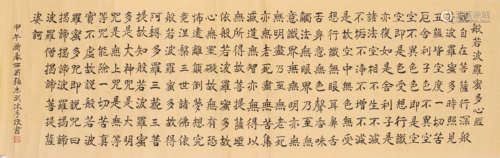 般若波羅蜜多心經
觀自在菩薩行深般
若波羅蜜多時照見
五蘊皆空度一切苦
厄舍利子色不異空
空不異色色即是空
空即是色受想行識
亦復如是舍利子是
諸法空相不生不滅
不垢不淨不增不減
是故空中無色無受
想行識無眼耳鼻
舌身意無色聲香味
觸法無眼界乃至無
意識界無無明亦無
無明盡乃至無老死
亦無老死盡無苦集
滅道無智亦無得以
無所得故菩提薩埵
依般若波羅蜜多故
心無罣礙無罣礙故無有恐
怖遠離顛倒夢想究
竟涅槃三世諸佛依
般若波羅蜜多故得
阿耨多羅三藐三菩
提故知般若波羅蜜
多是大神咒是大明
咒是無上咒是無等
等咒能除一切苦真
實不虛故說般若波
羅蜜多咒即說咒曰
揭諦揭諦波羅揭諦
波羅僧揭諦菩提薩
婆訶
甲午